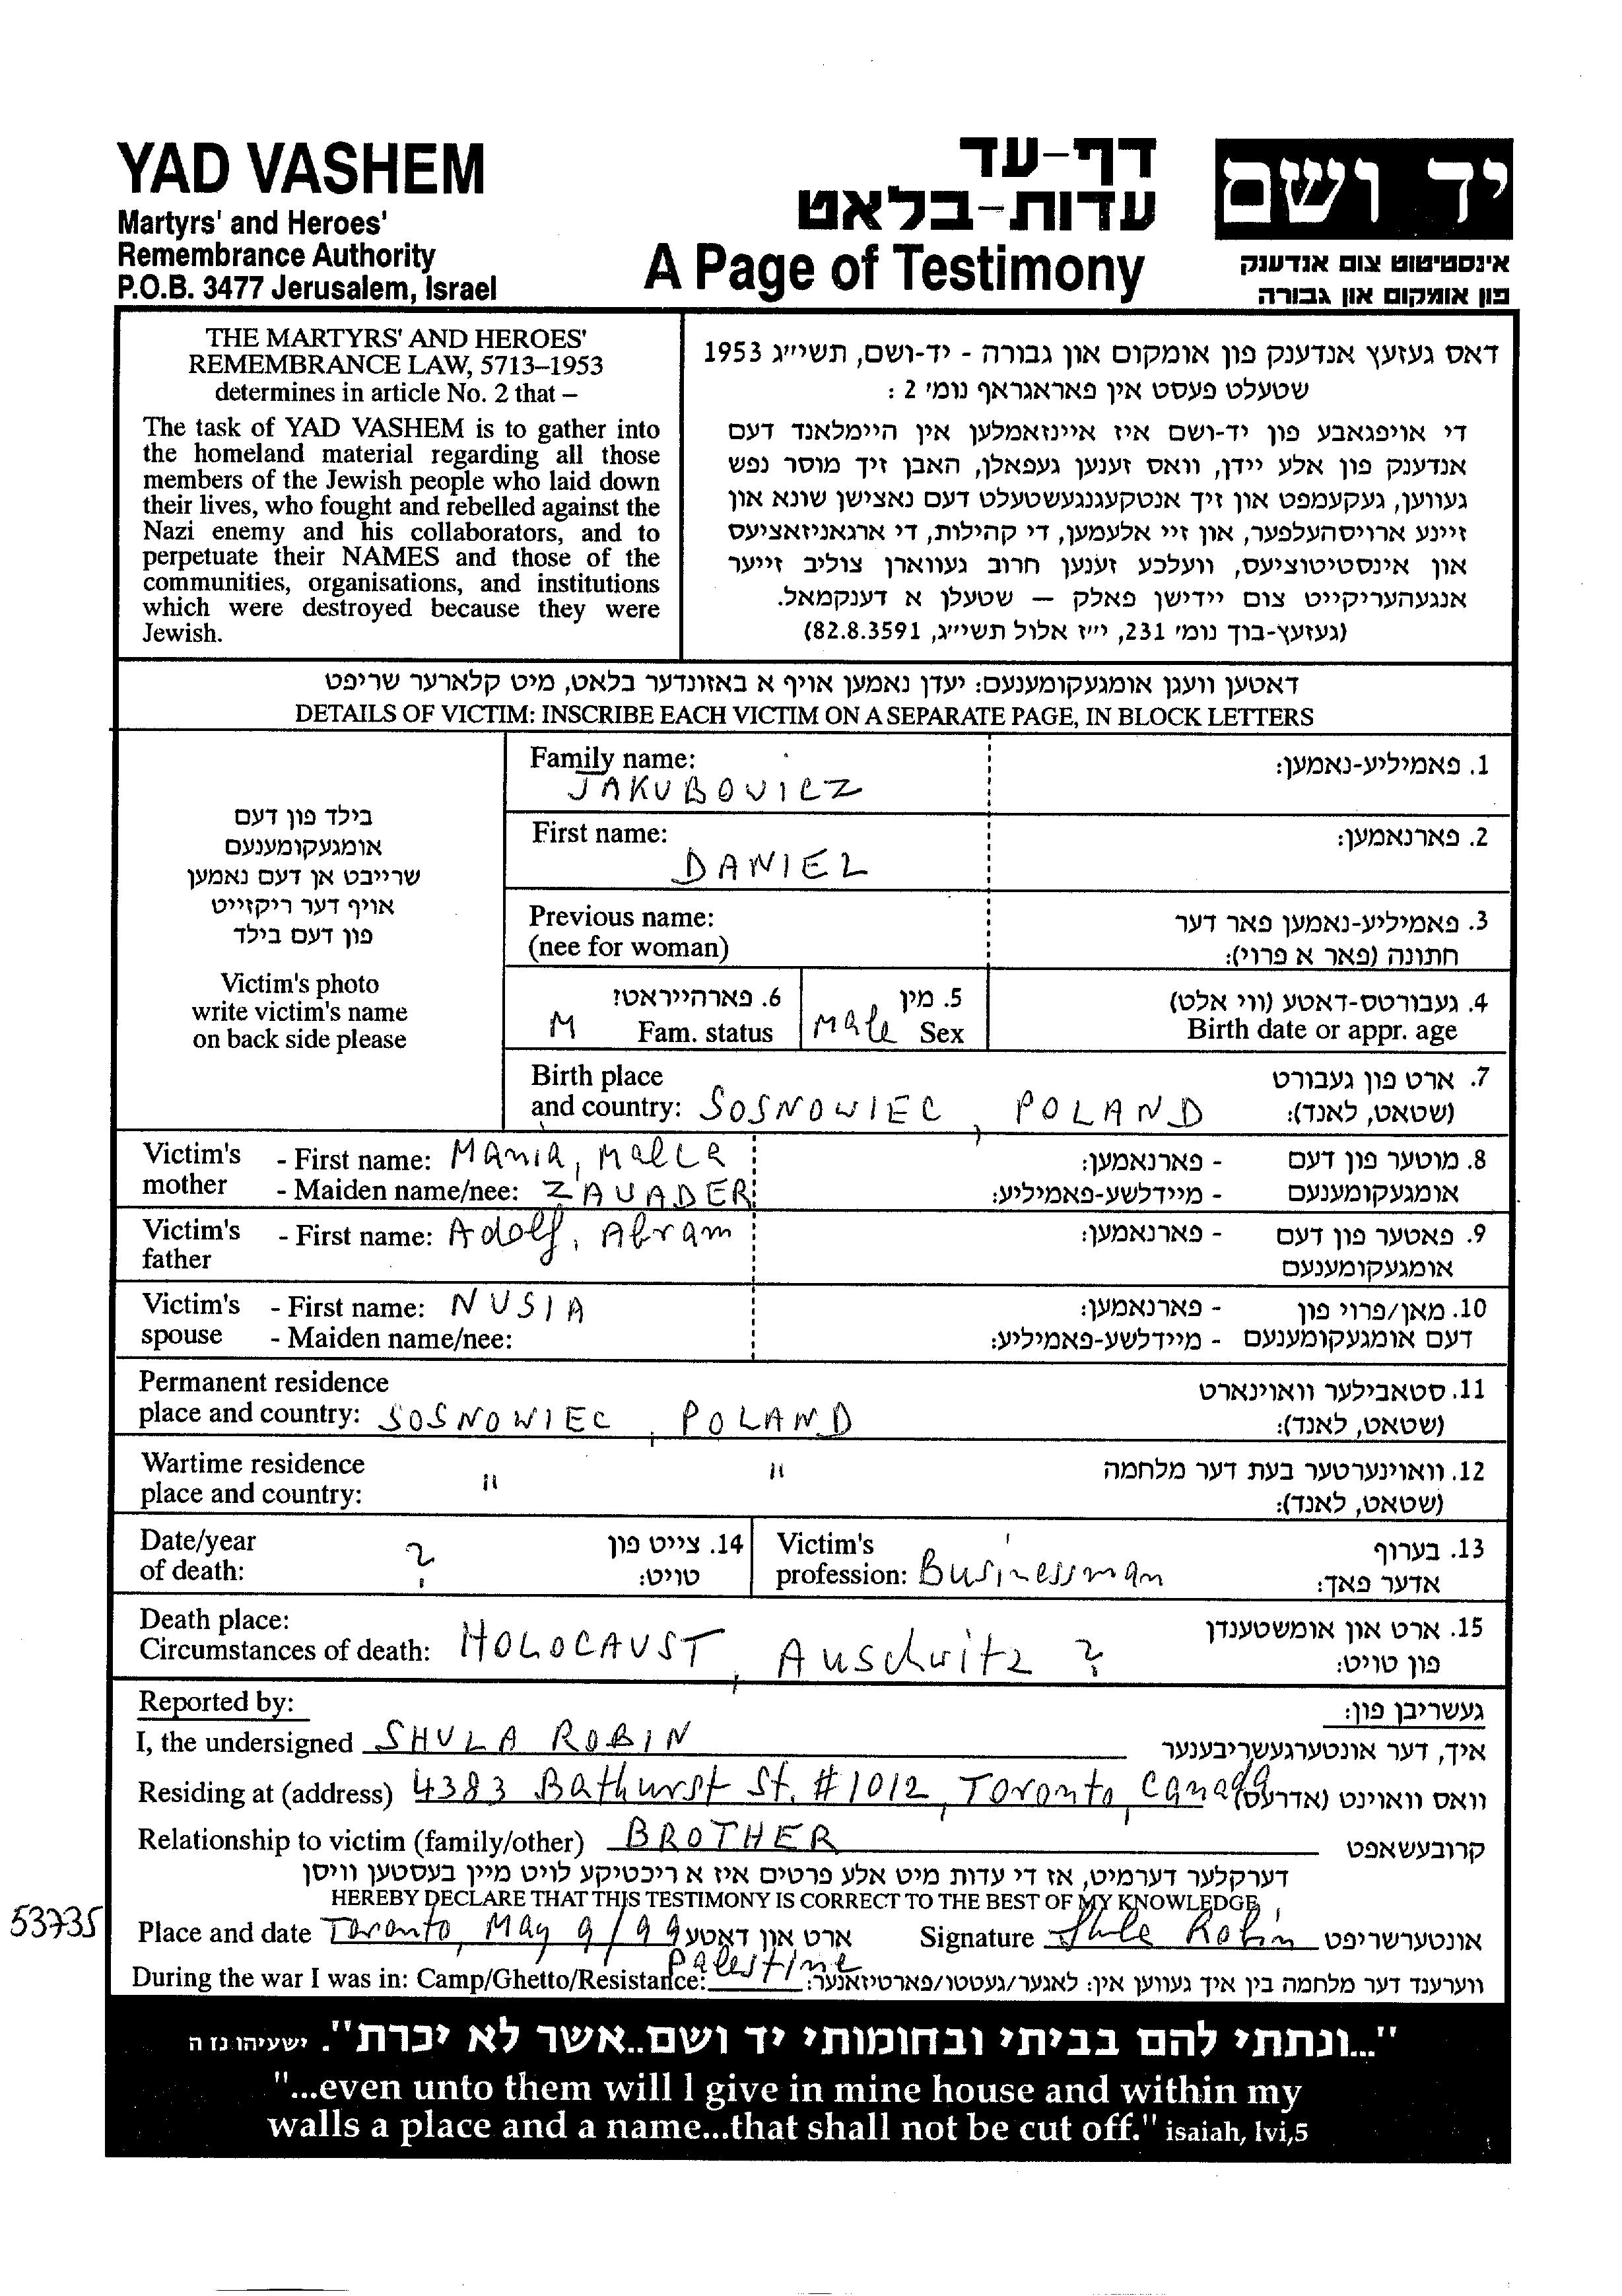 YAD VASHEM
Martyrs' and Heroes'
Remembrance Authority
P.O.B. 3477 Jerusalem, Israel
דף-עד
עדות-בלאט
A Page of Testimony
יד ושם
אינסטיטוט צום אנדענק
פון אומקום און גבורה
THE MARTYRS' AND HEROES'
REMEMBRANCE LAW, 5713–1953
determines in article No. 2 that –
The task of YAD VASHEM is to gather into
the homeland material regarding all those
members of the Jewish people who laid down
their lives, who fought and rebelled against the
Nazi enemy and his collaborators, and to
perpetuate their NAMES and those of the
communities, organisations, and institutions
which were destroyed because they were
Jewish.
דאס געזעץ אנדענק פון אומקום און גבורה - יד-ושם, תשי״ג 1953
שטעלט פעסט אין פאראגראף נומ׳ 2 :
די אויפגאבע פון יד-ושם איז איינזאמלען אין היימלאנד דעם
אנדענק פון אלע יידן, וואס זענען געפאלן, האבן זיך מוסר נפש
געווען, געקעמפט און זיך אנטקעגנגעשטעלט דעם נאצישן שונא און
זיינע ארויסהעלפער, און זיי אלעמען, די קהילות, די ארגאניזאציעס
און אינסטיטוציעס, וועלכע זענען חרוב געווארן צוליב זייער
אנגעהעריקייט צום יידישן פאלק — שטעלן א דענקמאל.
(געזעץ-בוך נומ׳ 231, י״ז אלול תשי״ג, 82.8.3591)
דאטען וועגן אומגעקומענעם: יעדן נאמען אויף א באזונדער בלאט, מיט קלארער שריפט
DETAILS OF VICTIM: INSCRIBE EACH VICTIM ON A SEPARATE PAGE, IN BLOCK LETTERS
בילד פון דעם
אומגעקומענעם
שרייבט אן דעם נאמען
אויף דער ריקזייט
פון דעם בילד
Victim's photo
write victim's name
on back side please
Family name: 1. פאמיליע-נאמען:
JAKUBOVICZ
First name: 2. פארנאמען:
DANIEL
Previous name: 3. פאמיליע-נאמען פאר דער
(nee for woman) חתונה (פאר א פרוי):
6. פארהייראט? 5. מין 4. געבורטס-דאטע (ווי אלט)
M Fam. status Male Sex Birth date or appr. age
Birth place 7. ארט פון געבורט
and country: SOSNOWIEC, POLAND (שטאט, לאנד):
Victim's - First name: Mania, Malla 8. מוטער פון דעם - פארנאמען:
mother - Maiden name/nee: ZAUADER אומגעקומענעם - מיידלשע-פאמיליע:
Victim's - First name: Adolf, Abram 9. פאטער פון דעם - פארנאמען:
father אומגעקומענעם
Victim's - First name: NUSIA 10. מאן/פרוי פון - פארנאמען:
spouse - Maiden name/nee: דעם אומגעקומענעם - מיידלשע-פאמיליע:
Permanent residence 11. סטאבילער וואוינארט
place and country: SOSNOWIEC, POLAND (שטאט, לאנד):
Wartime residence " " 12. וואוינערטער בעת דער מלחמה
place and country: (שטאט, לאנד):
Date/year ? 14. צייט פון Victim's 13. בערוף
of death: טויט: profession: Businessman אדער פאך:
Death place: 15. ארט און אומשטענדן
Circumstances of death: HOLOCAUST, Auschwitz ? פון טויט:
Reported by: געשריבן פון:
I, the undersigned SHULA ROBIN איך, דער אונטערגעשריבענער
Residing at (address) 4383 Bathurst St. #1012, Toronto, Canada וואס וואוינט (אדרעס)
Relationship to victim (family/other) BROTHER קרובעשאפט
דערקלער דערמיט, אז די עדות מיט אלע פרטים איז א ריכטיקע לויט מיין בעסטען וויסן
HEREBY DECLARE THAT THIS TESTIMONY IS CORRECT TO THE BEST OF MY KNOWLEDGE
53735
Place and date Toronto, May 9/99 ארט און דאטע Signature Shula Robin אונטערשריפט
During the war I was in: Camp/Ghetto/Resistance: Palestine ווערענד דער מלחמה בין איך געווען אין: לאגער/געטטו/פארטיזאנער:
"...ונתתי להם בביתי ובחומותי יד ושם..אשר לא יכרת". ישעיהו נז ה
"...even unto them will I give in mine house and within my
walls a place and a name...that shall not be cut off." isaiah, lvi,5